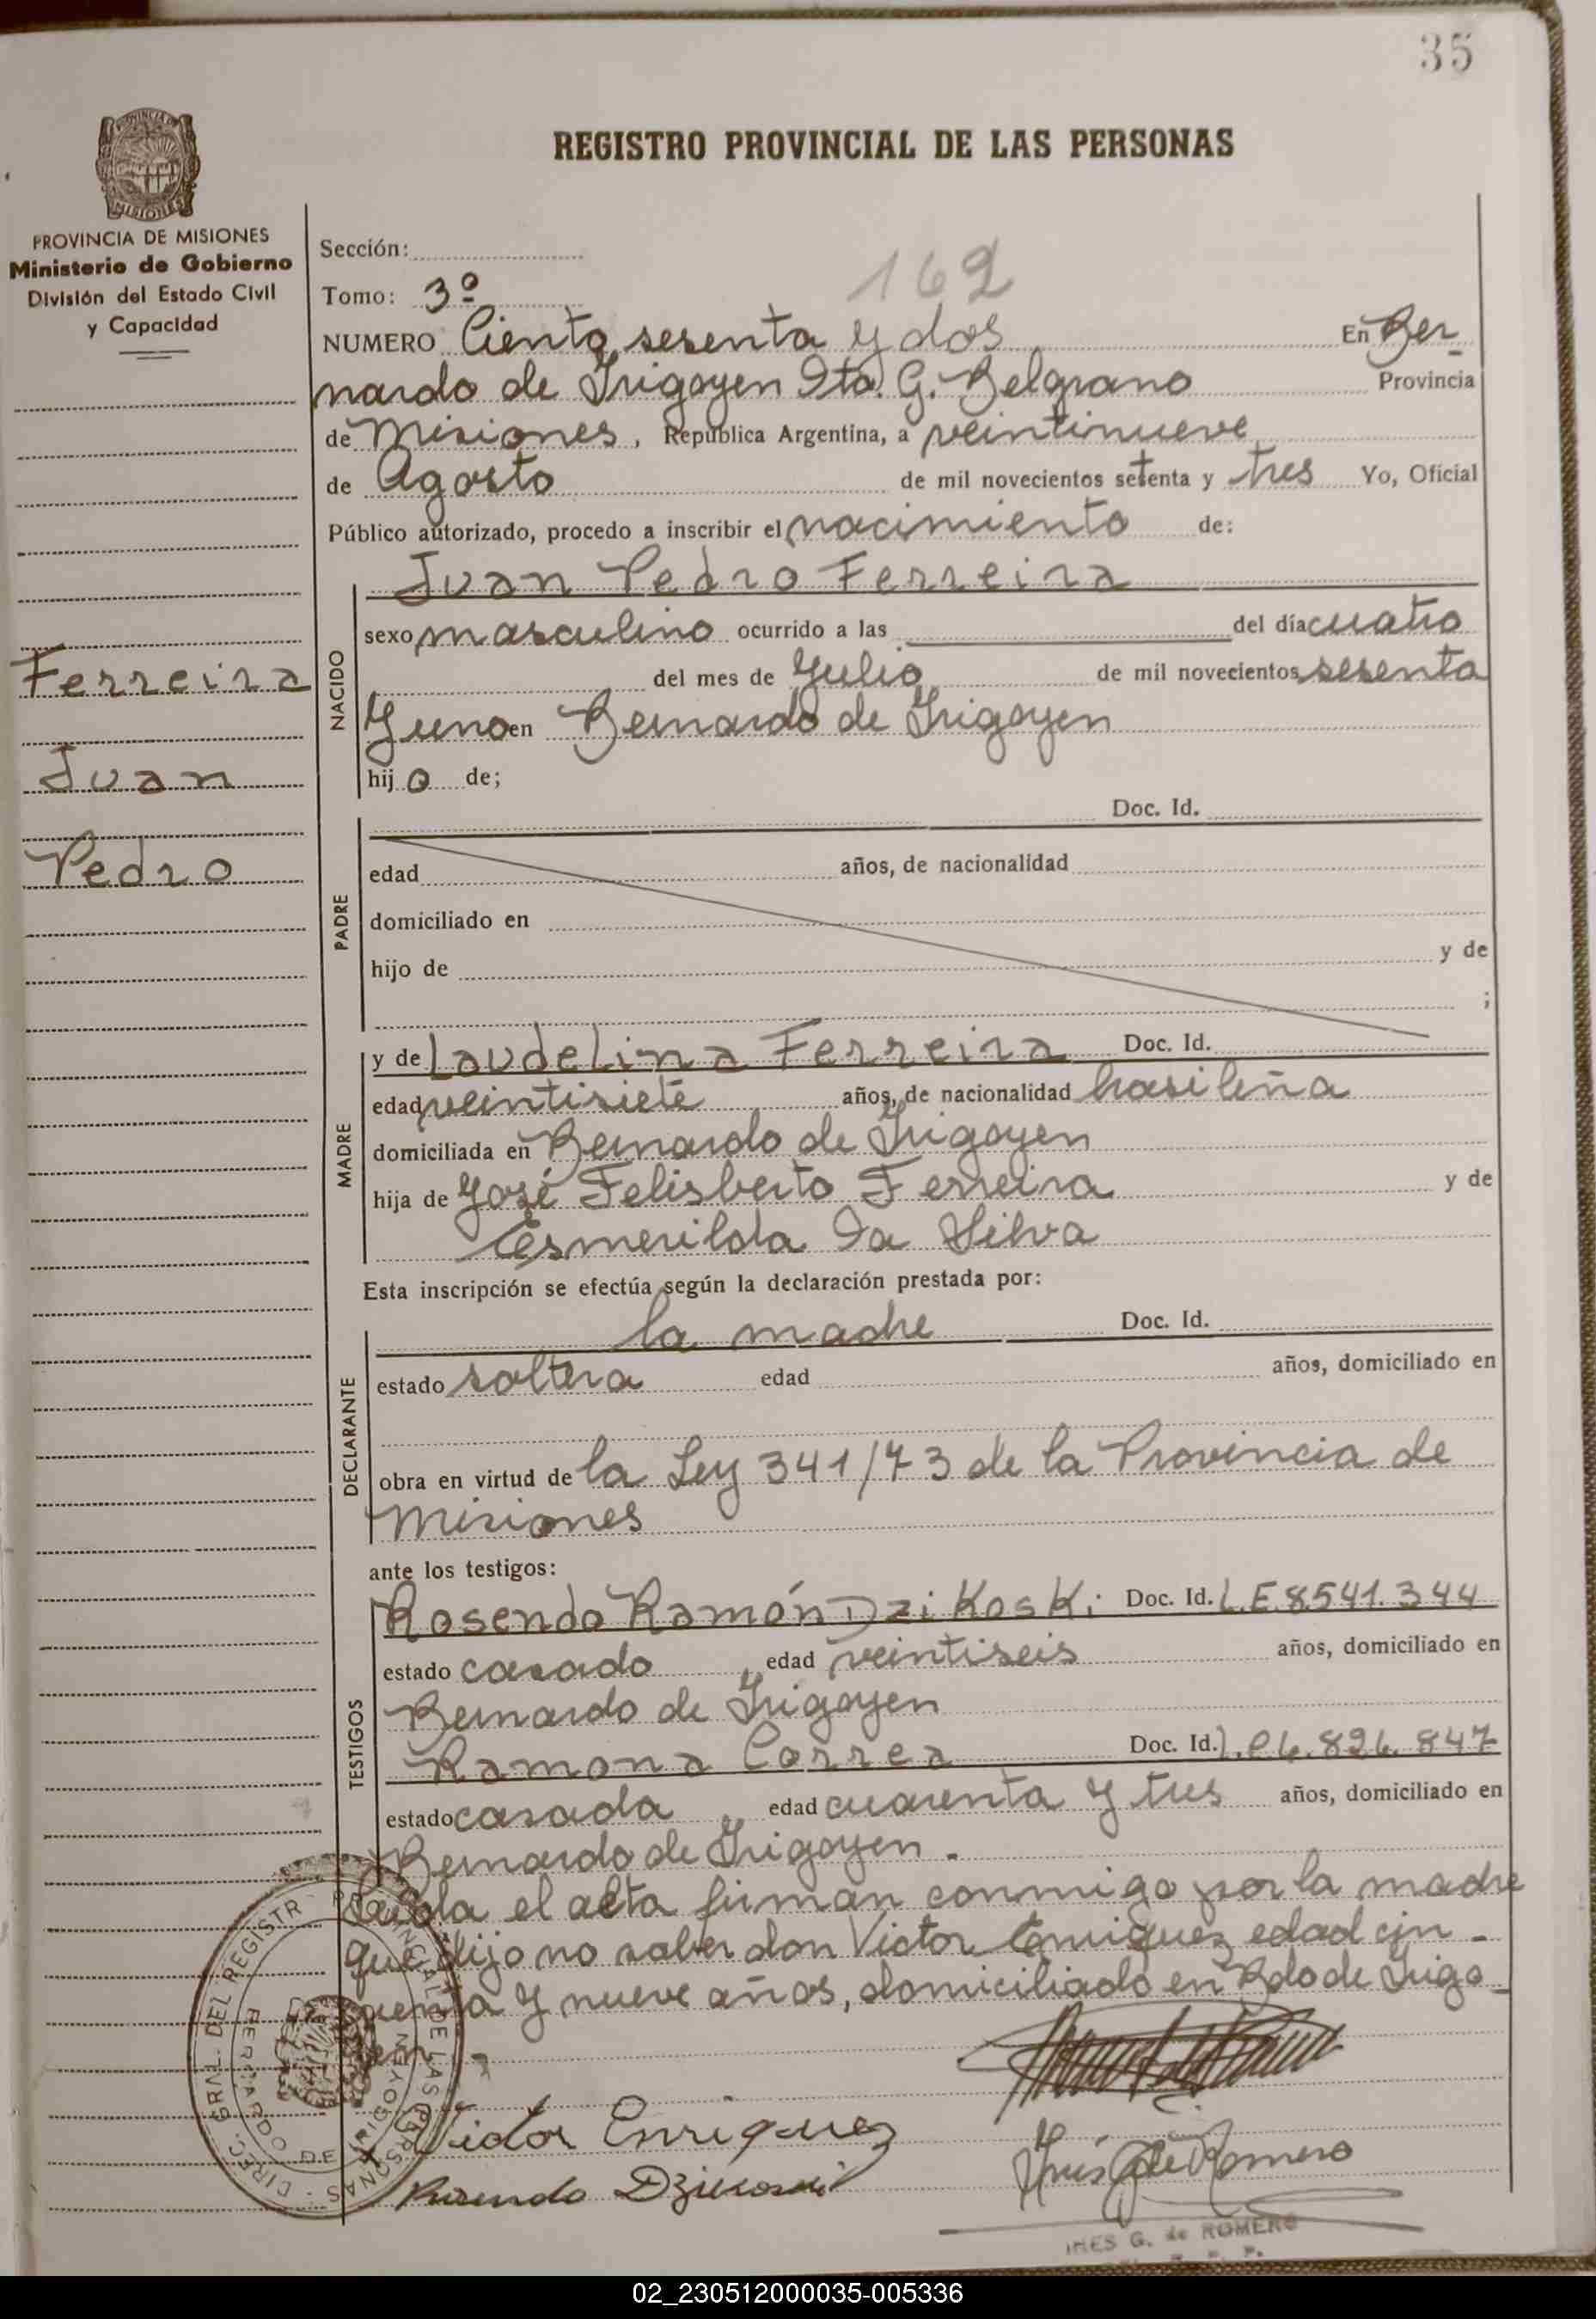 35
REGISTRO PROVINCIAL DE LAS PERSONAS
PROVINCIA DE MISIONES
Ministerio de Gobierno
División del Estado Civil
y Capacidad
Sección:
162
Tomo: 3º
NUMERO Ciento sesenta y dos En Ber-
nardo de Irigoyen Dto. G. Belgrano Provincia
de Misiones, República Argentina, a veintinueve
de Agosto de mil novecientos setenta y tres Yo, Oficial
Público autorizado, procedo a inscribir el nacimiento de:
Juan Pedro Ferreira
NACIDO
sexo masculino ocurrido a las del día cuatro
del mes de Julio de mil novecientos sesenta
y uno en Bernardo de Irigoyen
hijo de;
Ferreira
Juan
Pedro
PADRE
Doc. Id.
edad años, de nacionalidad
domiciliado en
hijo de y de
;
MADRE
y de Laudelina Ferreira Doc. Id.
edad veintisiete años, de nacionalidad brasileña
domiciliada en Bernardo de Irigoyen
hija de José Felisberto Ferreira y de
Esmerilda Da Silva
Esta inscripción se efectúa según la declaración prestada por:
DECLARANTE
la madre Doc. Id.
estado soltera edad años, domiciliado en
obra en virtud de la Ley 341/73 de la Provincia de
Misiones
ante los testigos:
TESTIGOS
Rosendo Ramón Dzikoski Doc. Id. L.E 8.541.344
estado casado edad veintiseis años, domiciliado en
Bernardo de Irigoyen
Ramona Correa Doc. Id. 6.826.847
estado casada edad cuarenta y tres años, domiciliado en
Bernardo de Irigoyen.
Leida el acta firman conmigo por la madre
que dijo no saber don Victor Enriquez edad cin-
cuenta y nueve años, domiciliado en Bdo de Irigo-
yen.
DIREC. GRAL. DEL REGISTR PROVINCIAL DE LAS PERSONAS
BERNARDO DE IRIGOYEN
Victor Enriquez
Rosendo Dzikoski
Inés G de Romero
INES G. de ROMERO
02_230512000035-005336